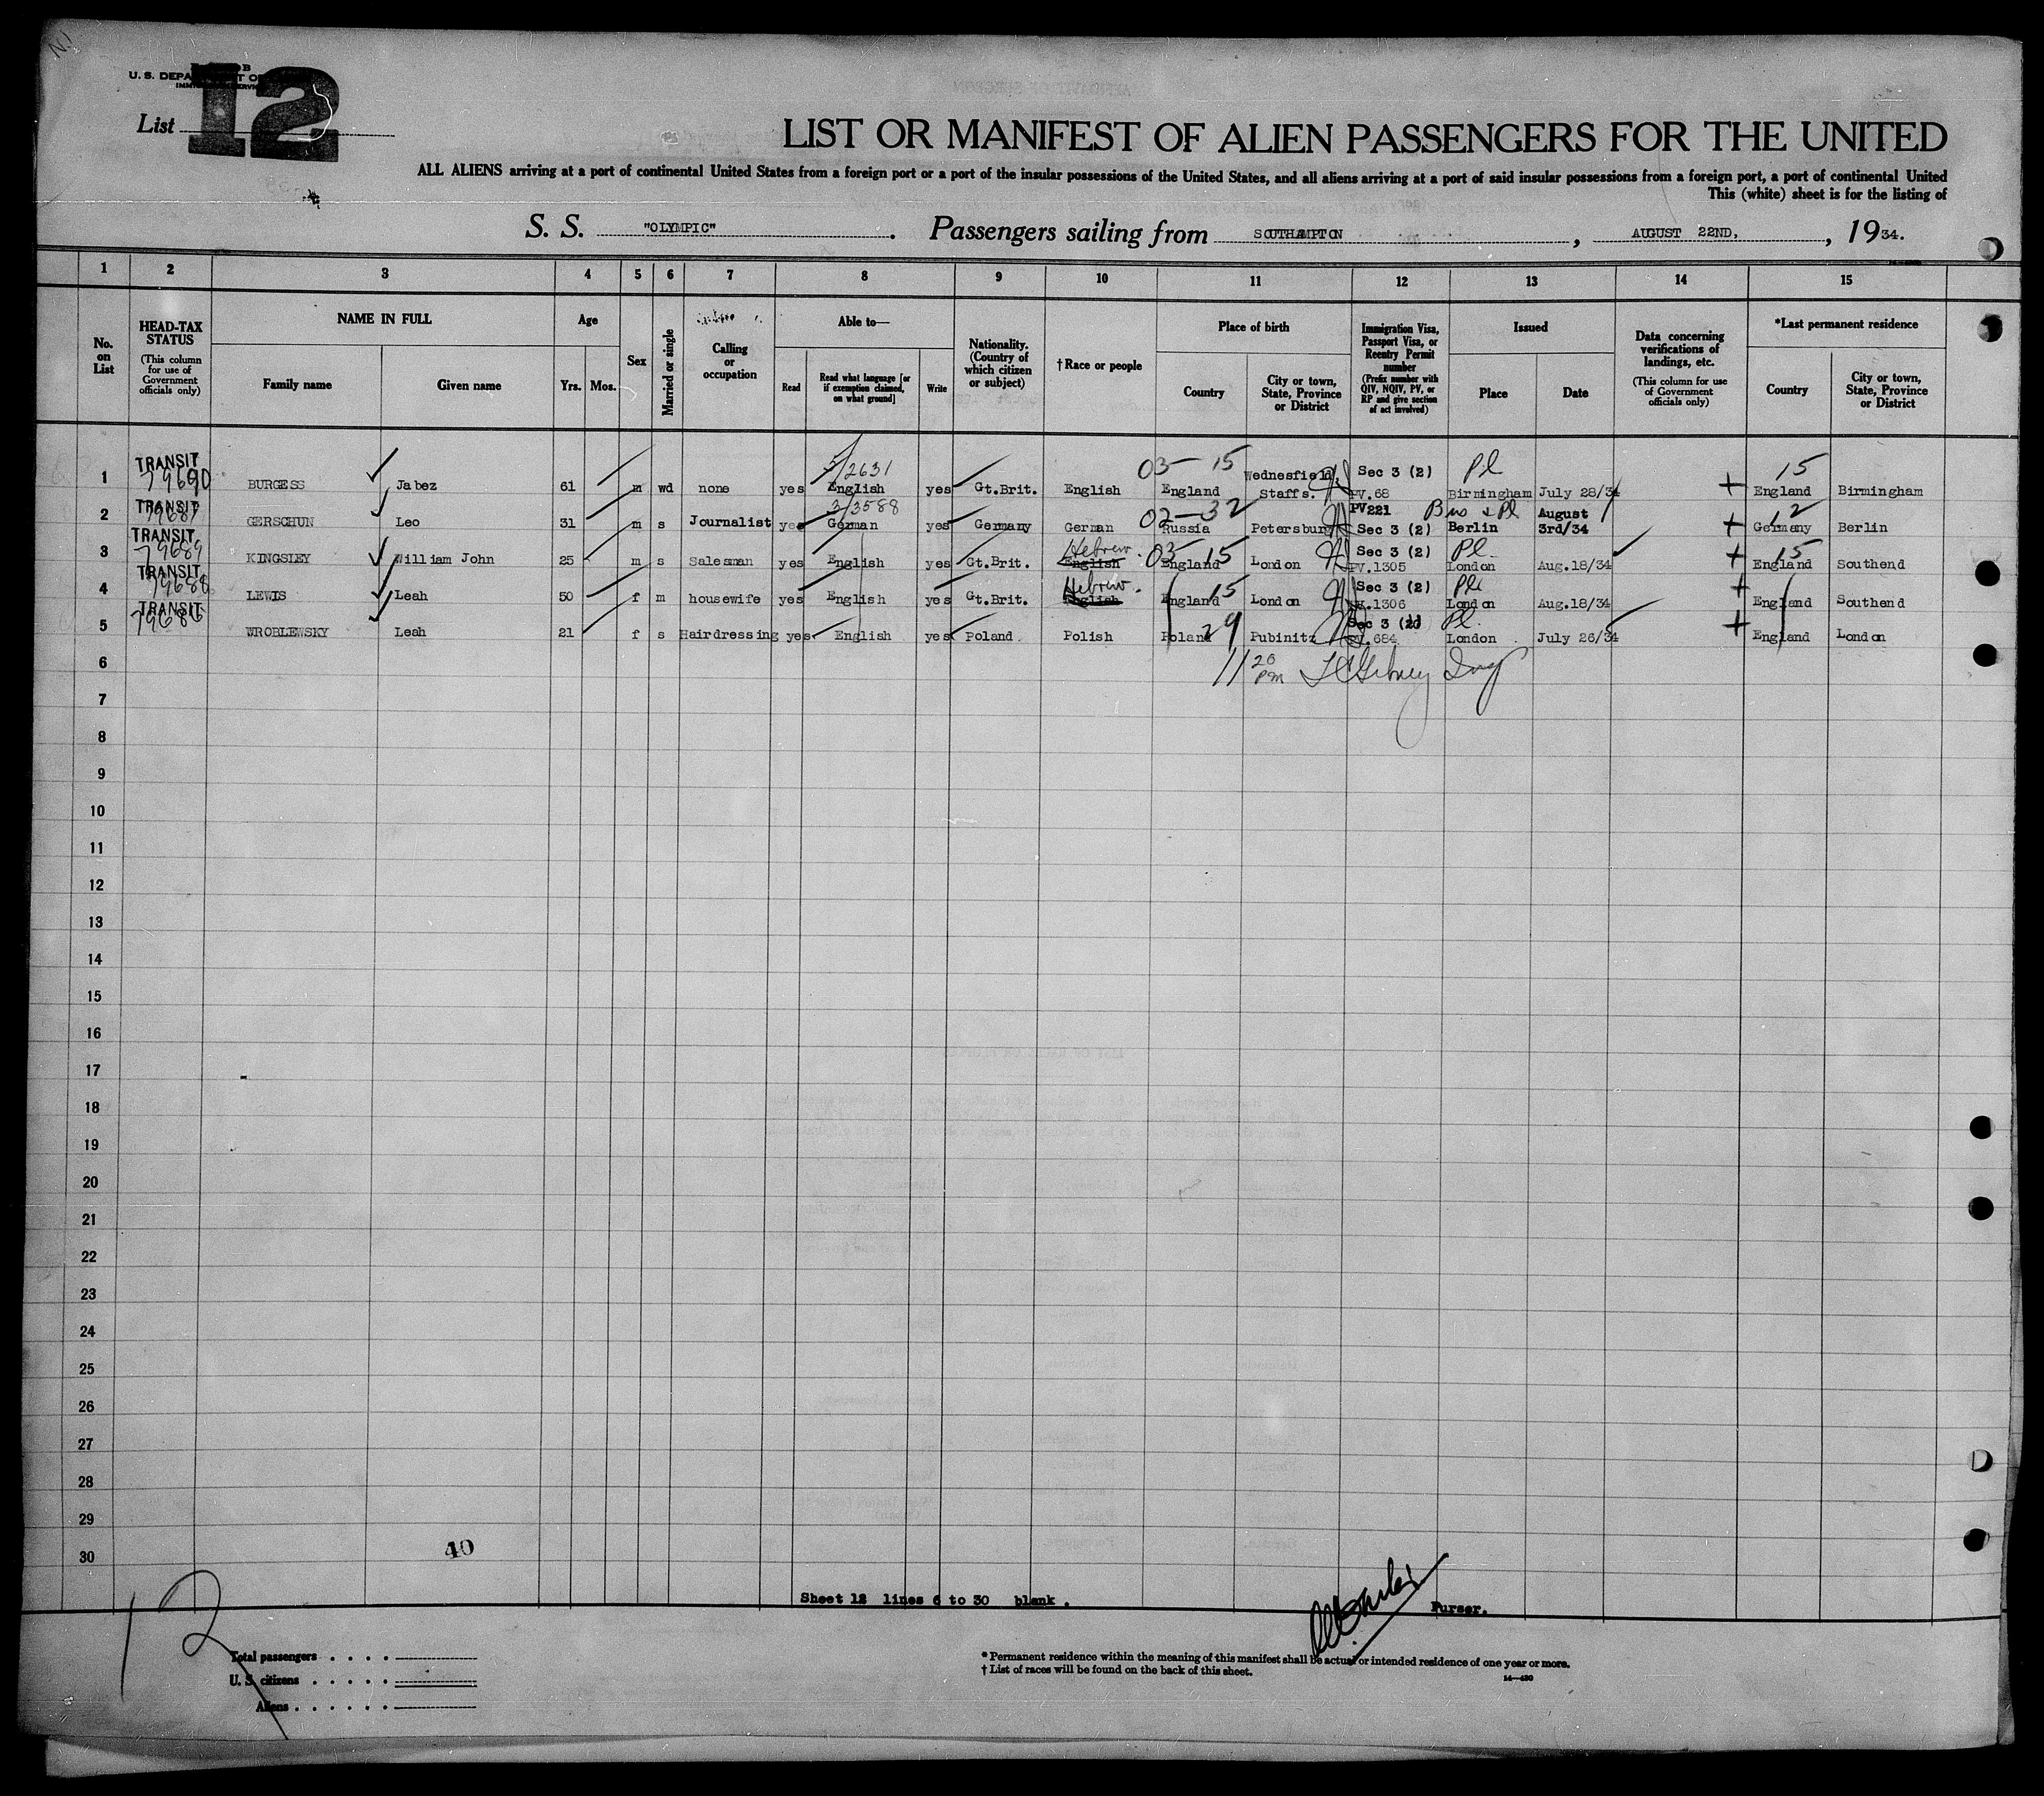 U. S. DEPA
List 12
LIST OR MANIFEST OF ALIEN PASSENGERS FOR THE UNITED
ALL ALIENS arriving at a port of continental United States from a foreign port or a port of the insular possessions of the United States, and all aliens arriving at a port of said insular possessions from a foreign port, a port of continental United
This (white) sheet is for the listing of
S. S. "OLYMPIC". Passengers sailing from SOUTHAMPTON, AUGUST 22ND, 1934.
1 2 3 4 5 6 7 8 9 10 11 12 13 14 15
No. on List
HEAD-TAX STATUS (This column for use of Government officials only)
NAME IN FULL Family name Given name
Age Yrs. Mos.
Sex
Married or single
Calling or occupation
Able to— Read Read what language [or if exemption claimed, on what ground] Write
Nationality. (Country of which citizen or subject)
†Race or people
Place of birth Country City or town, State, Province or District
Immigration Visa, Passport Visa, or Reentry Permit number (Prefix number with QIV, NQIV, PV, or RP and give section of act involved)
Issued Place Date
Data concerning verifications of landings, etc. (This column for use of Government officials only)
*Last permanent residence Country City or town, State, Province or District
1 TRANSIT 79690 BURGESS Jabez 61 m wd none yes 5/2631 English yes Gt.Brit. English 03-15 England Wednesfield Staffs. Sec 3 (2) PV.68 Pl Birmingham July 28/34 + 15 England Birmingham
2 TRANSIT 79687 GERSCHUN Leo 31 m s Journalist yes 3/3588 German yes Germany German 02-32 Russia Petersburg PV221 Sec 3 (2) Bus & Pl Berlin August 3rd/34 + 12 Germany Berlin
3 TRANSIT 79689 KINGSLEY William John 25 m s Salesman yes English yes Gt.Brit. Hebrew. English 03-15 England London Sec 3 (2) PV.1305 Pl. London Aug.18/34 + 15 England Southend
4 TRANSIT 79688 LEWIS Leah 50 f m housewife yes English yes Gt.Brit. Hebrew. English 15 England London Sec 3 (2) PV.1306 Pl London Aug.18/34 + England Southend
5 TRANSIT 79686 WROBLEWSKY Leah 21 f s Hairdressing yes English yes Poland Polish 29 Poland Pubinitz Sec 3 (2) PV.684 Pl. London July 26/34 + England London
6 11 20 PM Insp
7
8
9
10
11
12
13
14
15
16
17
18
19
20
21
22
23
24
25
26
27
28
29
30
40
Sheet 12 lines 6 to 30 blank.
Purser.
12
Total passengers
U. S. citizens
Aliens
* Permanent residence within the meaning of this manifest shall be actual or intended residence of one year or more.
† List of races will be found on the back of this sheet.
14—430